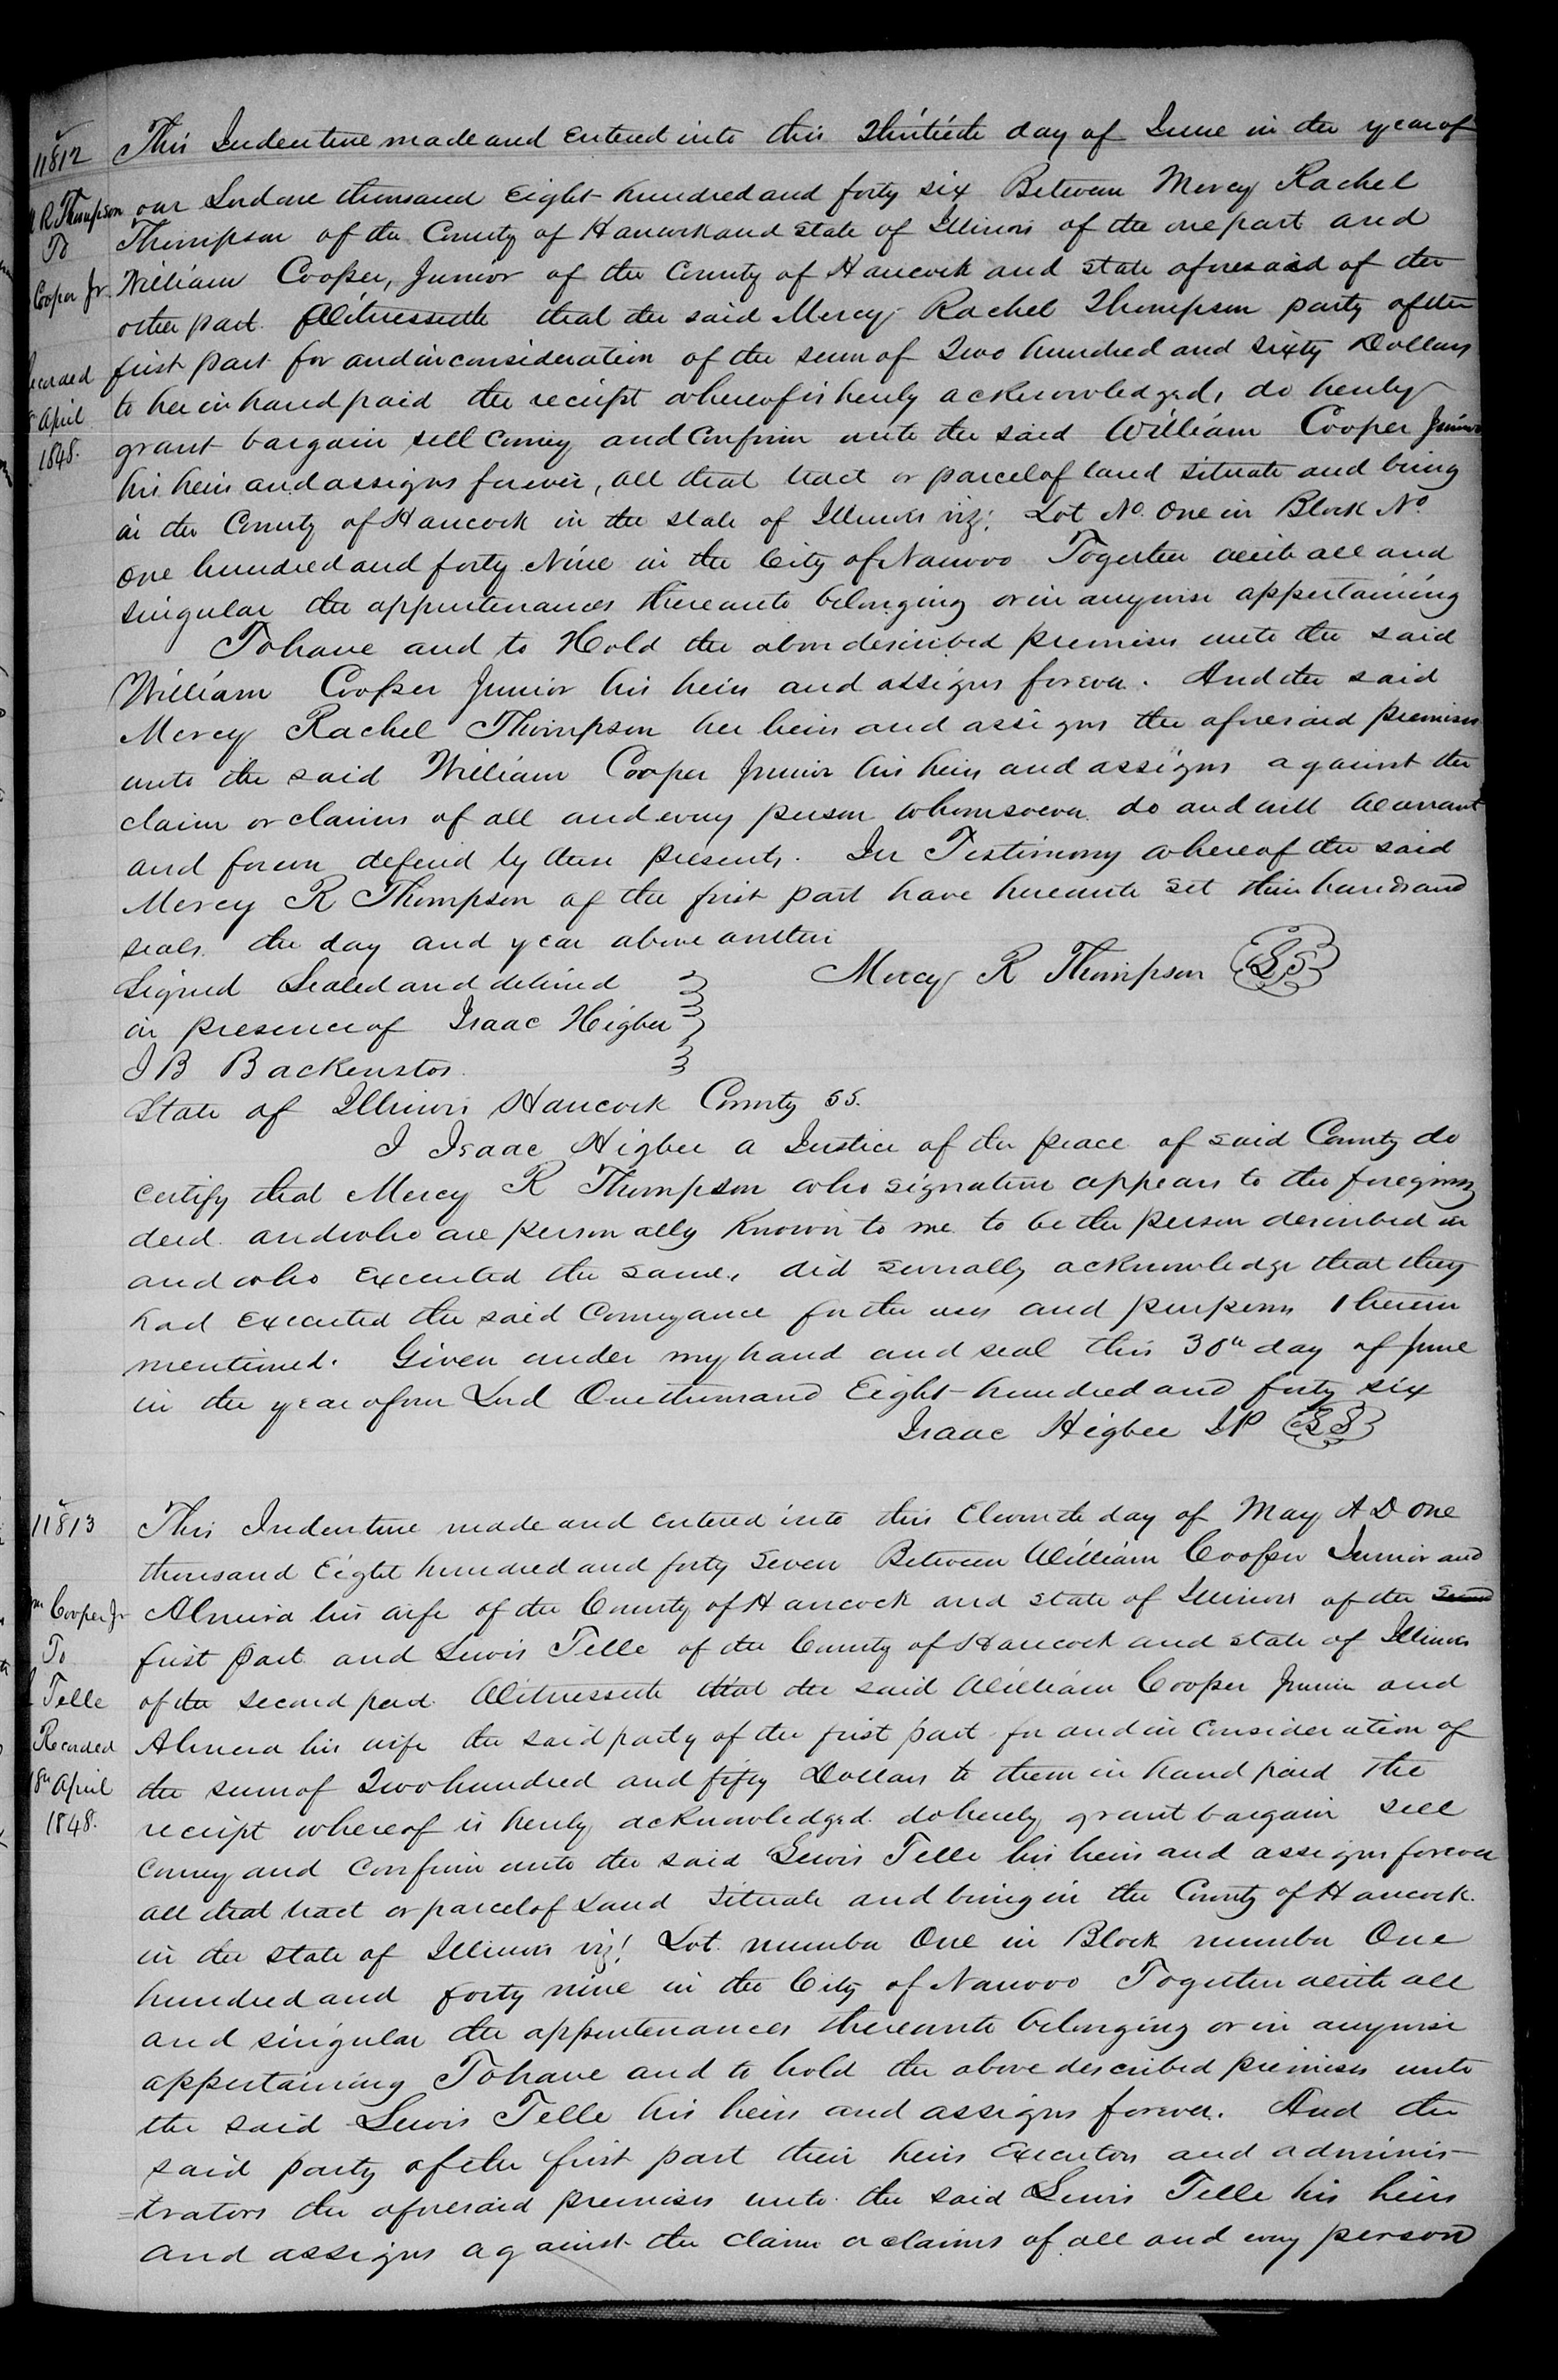 11812
R Thompson
To
Cooper Jr
April
1848.
This Indenture made and entered into this Thirtieth day of June in the year of
our Lord one thousand Eight hundred and forty six Between Mercy Rachel
Thompson of the County of Hancock and state of Illinois of the one part and
William Cooper, Junior of the County of Hancock and state aforesaid of the
other part. Witnesseth that the said Mercy Rachel Thompson party of the
first part for and in consideration of the sum of Two hundred and sixty Dollars
to her in hand paid the reciept whereof is hereby acknowledged, do hereby
grant bargain sell convey and confirm unto the said William Cooper Junior
his heirs and assigns forever, all that tract or parcel of land situate and being
in the County of Hancock in the state of Illinois viz: Lot No. One in Block No.
one hundred and forty Nine in the City of Nauvoo Together with all and
singular the appurtenances thereunto belonging or in anywise appertaining
To have and to Hold the above described premises unto the said
William Cooper Junior his heirs and assigns forever. And the said
Mercy Rachel Thompson her heirs and assigns the aforesaid premises
unto the said William Cooper Junior his heirs and assigns against the
claim or claims of all and every person whomsoever do and will Warrant
and forever defend by these presents. In Testimony whereof the said
Mercy R Thompson of the first part have hereunto set their hands and
seals the day and year above written
Signed Sealed and delivered
in presence of Isaac Higbee
J B Backenstos.
Mercy R Thompson LS
State of Illinois Hancock County SS.
I Isaac Higbee a Justice of the peace of said County do
certify that Mercy R Thompson who signature appears to the foregoing
deed and who are personally known to me to be the person described in
and who executed the same, did severally acknowledge that they
had executed the said Conveyance for the uses and purposes therein
mentioned. Given under my hand and seal this 30th day of June
in the year of our Lord One thousand Eight hundred and forty six
Isaac Higbee JP LS
11813
Cooper Jr
To
Telle
Recorded
18th April
1848.
This Indenture made and entered into this Eleventh day of May A D one
thousand Eight hundred and forty Seven Between William Cooper Junior and
Almira his wife of the County of Hancock and state of Illinois of the
first part and Lewis Telle of the County of Hancock and state of Illinois
of the second part Witnesseth that the said William Cooper Junior and
Almira his wife the said party of the first part for and in Consideration of
the sum of Two hundred and fifty Dollars to them in hand paid the
reciept whereof is hereby acknowledged do hereby grant bargain sell
convey and confirm unto the said Lewis Telle his heirs and assigns forever
all that tract or parcel of Land situate and being in the County of Hancock
in the state of Illinois viz! Lot number One in Block number One
hundred and forty nine in the City of Nauvoo Together with all
and singular the appurtenances thereunto belonging or in anywise
appertaining To have and to hold the above described premises unto
the said Lewis Telle his heirs and assigns forever. And the
said party of the first part their heirs Executors and adminis-
=trators the aforesaid premises unto the said Lewis Telle his heirs
and assigns against the claim or claims of all and every person